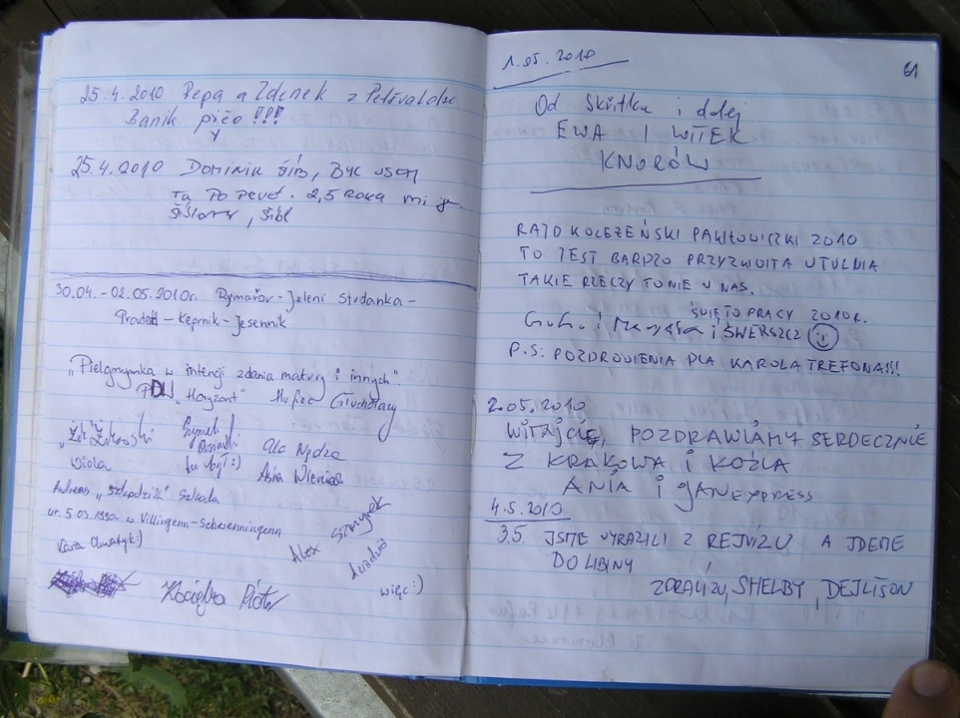 25.4. 2010 Pepa a Zdenek z Petřvaldu
Baník pičo !!!
25.4. 2010 DOMINIK ŠÍBL, BYL JSEM
TU PO PRVÉ. 2,5 ROKA MI
Šíblovy, Šíbl
30.04.-02.05.2010r. Rymařov - Jeleni Studanka -
Praděd - Keprnik - Jesennik
"Pielgrzymka w intencji zdania matury i innych".
PDH "Horyzont" Hufiec Głuchołazy
"Żił" Żukowski Szymek
Osiński
tu był :) Ola Nędza
Wiola Asia
Andreas "Szkodzik" Szkoda
ur. 5.03.1990r. w Villingenn-Schwenningenn
Kasia
Alex Szmyrek
więc :)
Piotr
1.05.2010
61
Od Skřítka i dalej
EWA I WITEK
KNURÓW
RAJD KOLEŻEŃSKI PAWŁOWICZKI 2010
TO JEST BARDZO PRZYZWOITA UTULNIA
TAKIE RZECZY TO NIE U NAS.
ŚWIĘTO PRACY 2010R.
Guhu i i ŚWIERSZCZ
P.S: POZDROWIENIA DLA KAROLA TREFONA!!!
2.05.2010
WITAJCIE, POZDRAWIAMY SERDECZNIE
Z KRAKOWA I KOŹLA
ANIA I JANEXPRESS
4.5.2010
3.5. JSME VYRAZILI Z REJVÍZU A JDEME
DO LIBINY
ZDRAVÍZU, SHELBY, DEJLISON